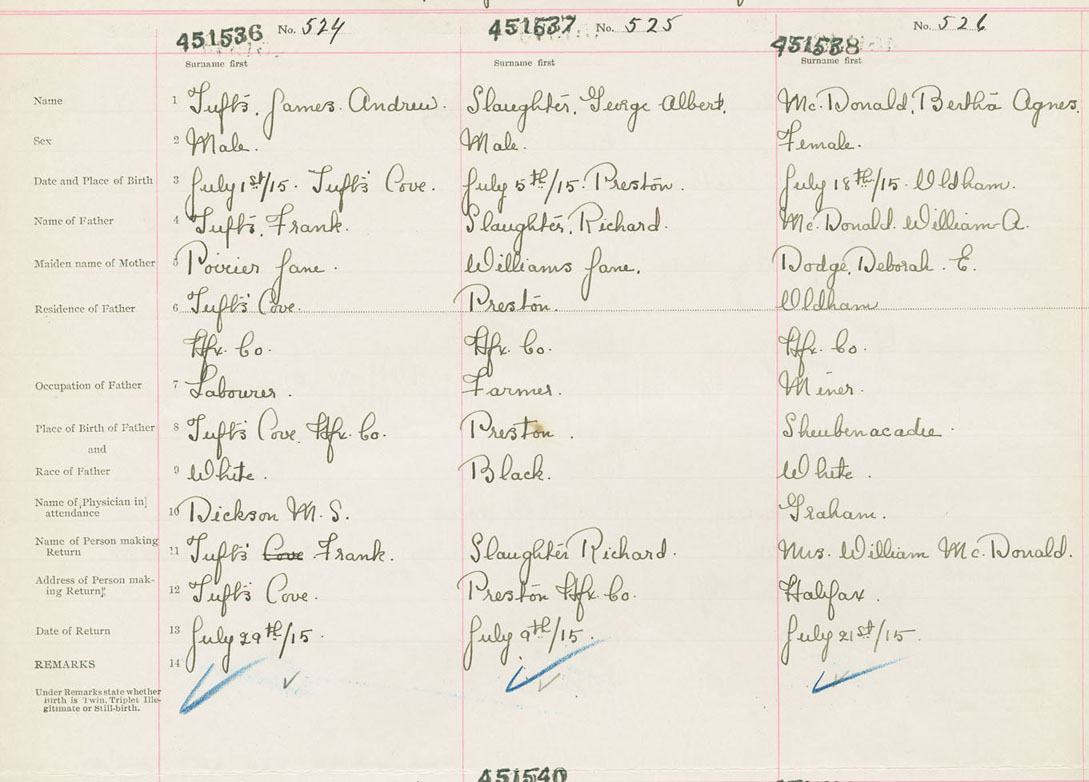 451536 No. 524 451537 No. 525 451538 No. 526
Surname first Surname first Surname first
Name 1 Tufts, James Andrew. Slaughter, George Albert. McDonald, Bertha Agnes.
Sex 2 Male. Male. Female.
Date and Place of Birth 3 July 1st/15. Tufts Cove. July 5th/15. Preston. July 18th/15. Oldham.
Name of Father 4 Tufts, Frank. Slaughter, Richard. McDonald William A.
Maiden name of Mother 5 Poirier Jane. Williams Jane. Dodge, Deborah. E.
Residence of Father 6 Tufts Cove. Preston. Oldham
Hfx. Co. Hfx. Co. Hfx. Co.
Occupation of Father 7 Labourer. Farmer. Miner.
Place of Birth of Father 8 Tufts Cove, Hfx. Co. Preston. Sheubenacadie.
and
Race of Father 9 White. Black. White.
Name of Physician in
attendance 10 Dickson M. S. Graham.
Name of Person making
Return 11 Tufts Cove Frank. Slaughter Richard. Mrs. William McDonald.
Address of Person mak-
ing Return 12 Tufts Cove. Preston Hfx. Co. Halifax.
Date of Return 13 July 29th/15. July 9th/15. July 21st/15.
REMARKS 14
Under Remarks state whether
Birth is Twin, Triplet Ille-
gitimate or Still-birth.
451540